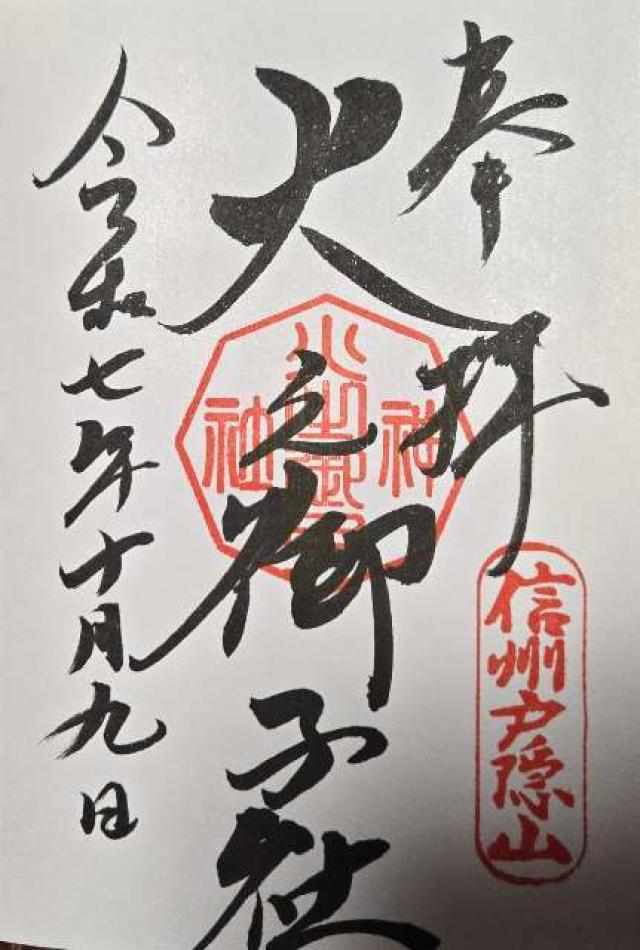 奉拝
信州戸隠山
火之御子社
神社
令和七年十月九日